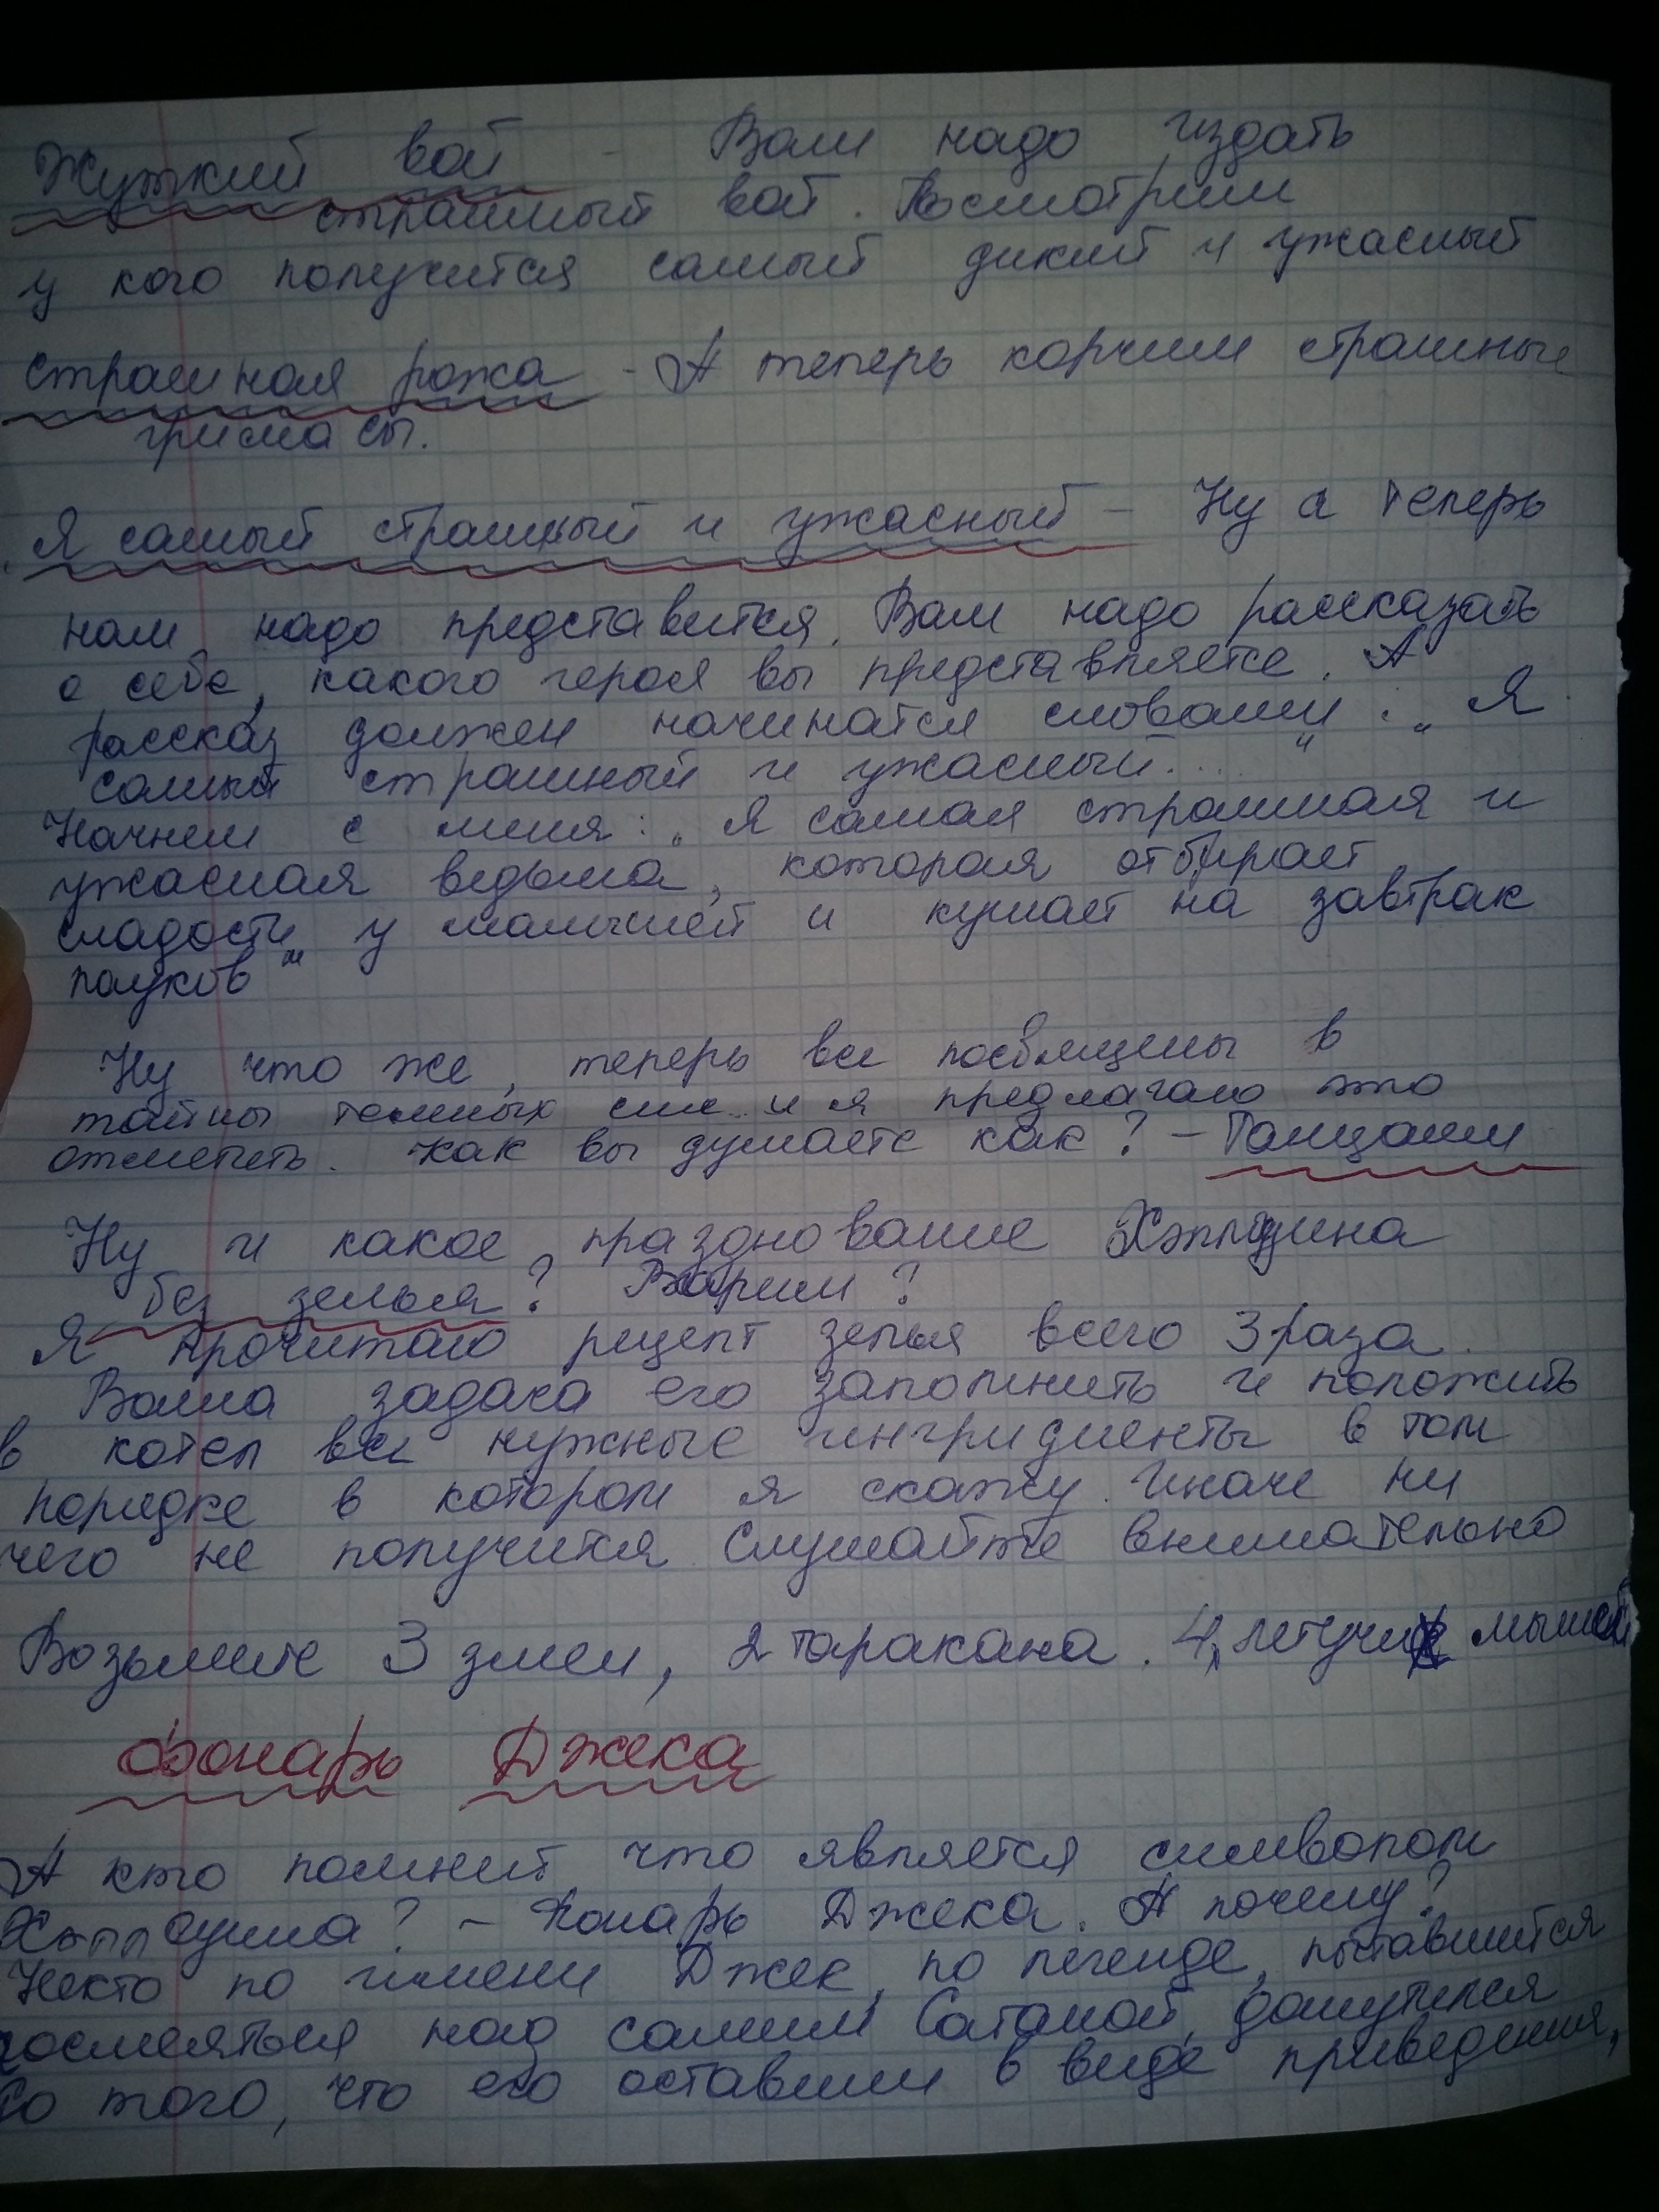 Жуткий вой - Вам надо издать
страшный вой. Посмотрим
у кого получится самый дикий и ужасный
Страшная рожа - А теперь корчим страшные
гримасы.
Я самый страшный и ужасный - Ну а теперь
нам надо представится. Вам надо рассказать
о себе, какого героя вы представляете. А
рассказ должен начинатся словами: „Я
самый страшный и ужасный...."
Начнем с меня: „Я самая страшная и
ужасная ведьма, которая отбирает
сладости у малышей и кушает на завтрак
пауков"
Ну что же, теперь все посвящены в
тайны темных сил и я предлагаю это
отметить. Как вы думаете как? - Танцами
Ну и какое празднование Хэллоуина
без зелья? Варим?
Я прочитаю рецепт зелья всего 3 раза.
Ваша задача его запомнить и положить
в котел все нужные ингридиенты в том
порядке в котором я скажу. Иначе ни
чего не получится. Слушайте внимательно
Возьмите 3 змеи, 2 таракана. 4 летучих мышей
Фонарь Джека
А кто помнит что является символом
Хэллоуина? - Фонарь Джека. А почему?
Некто по имени Джек, по легенде, пытавшийся
посмеяться над самим Сатаной, дошутился
до того, что его оставили в виде приведения,